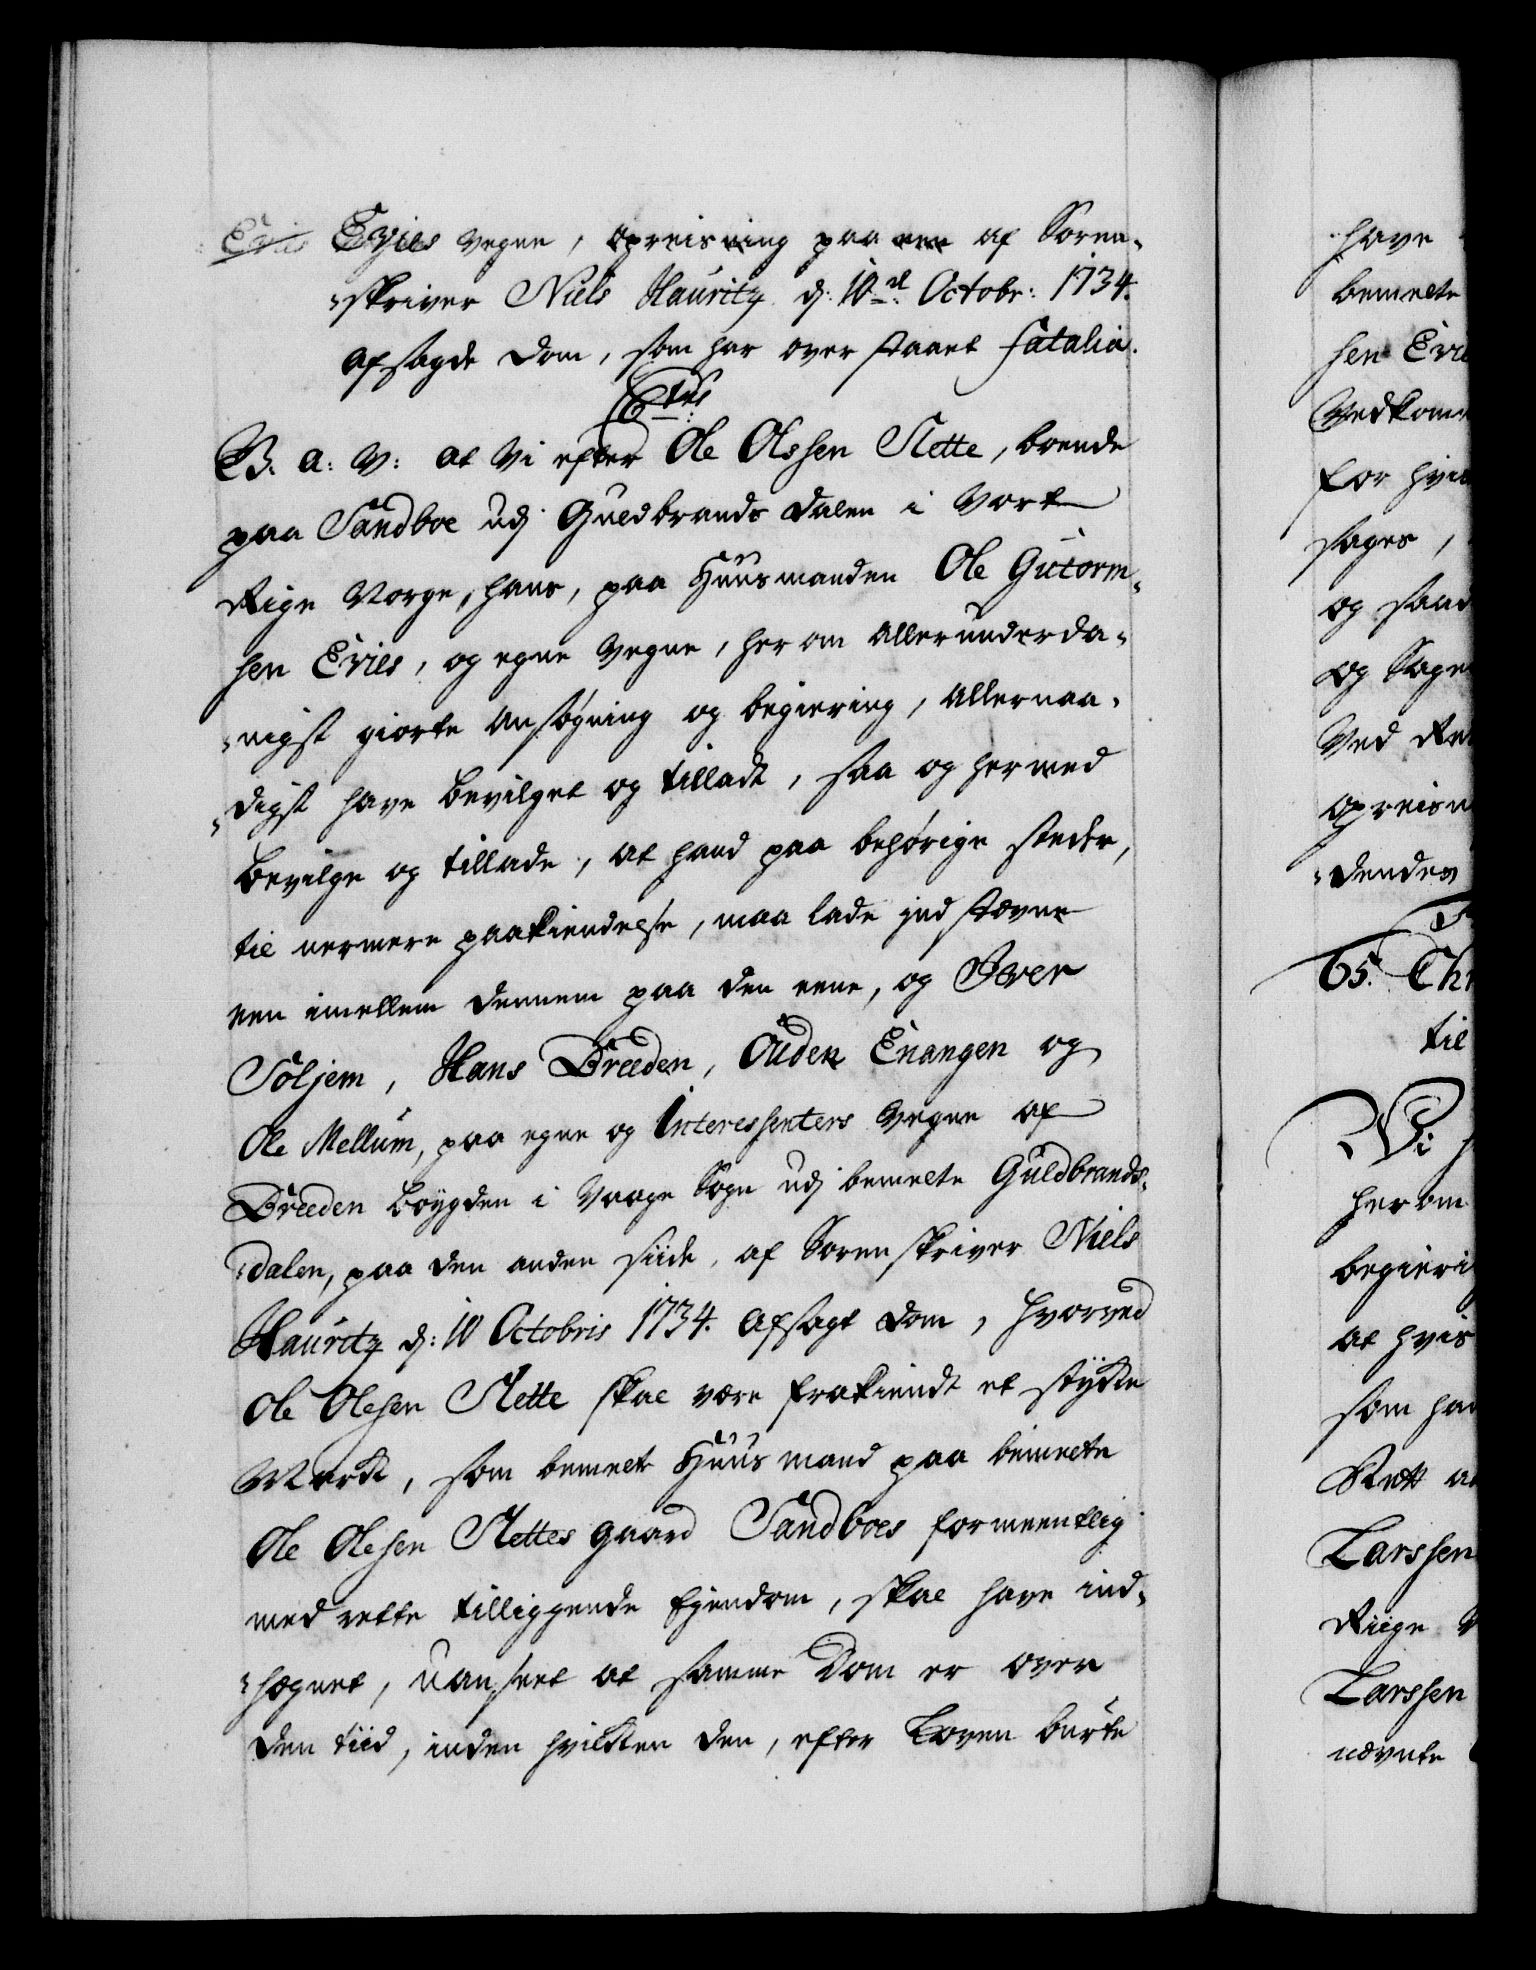 Evies Vegne, opreisning paa een af Soren-
skriver Niels Hauritz d: 10de Octobr: 1734.
afsagde Dom, som har over staaet fatalia.
C6tus
B. a: V: at Vi efter Ole Olssen Slette, boende
paa Sandboe udj Guldbrands dalen i Vort
Rige Norge, hans, paa Huusmanden Ole Gutorm-
sen Evies, og egne Vegne, her om allerunderda-
nigst giorte ansøgning og begiering, allernaa-
digst have bevilget og tilladt, saa og hermed
bevilge og tillade, at hand paa behørige steder,
til nermere paakiendelse, maa lade jndstævne
een imellem dennem paa den eene, og Iver
Soljem, Hans Breeden, Ouden Enangen og
Ole Mellum, paa egne og Interessenters Vegne af
Breeden Boygden i Vaage Sogn udj bemelte Guldbrands-
dalen, paa den anden siide, af Sorenskriver Niels
Hauritz d: 10 Octobris 1734. afsagt Dom, hvorved
Ole Olesen Slette skal være frakiendt et stykke
Mark, som bemelte Huusmand paa bemelte
Ole Olesen Slettes gaard Sandboes formeentlig
med rette tilliggende Ejendom, skal have ind-
hægnet, uanseet at samme Dom er over
den tiid, inden hvilken den, efter Loven burte
have
bemelte
sen Evie
Vedkom
for hvi
sages,
og saad
og Sage
Ved Re
opreisn
dendes
65. Chr
til
Vi
herom
begieri
at hvis
som ha
Rett a
Larssen
Riige
Larssen
nævnte